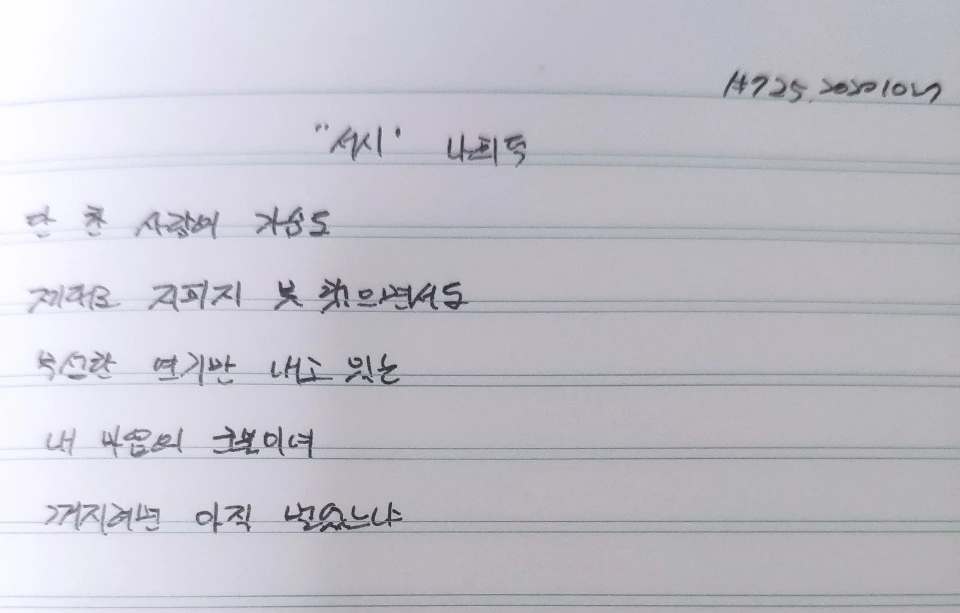 #725. 20201027
"서시" 나희덕
단 한 사람의 가슴도
제대로 지피지 못 했으면서도
무성한 연기만 내고 있는
내 마음의 군불이여
꺼지려면 아직 멀었느냐